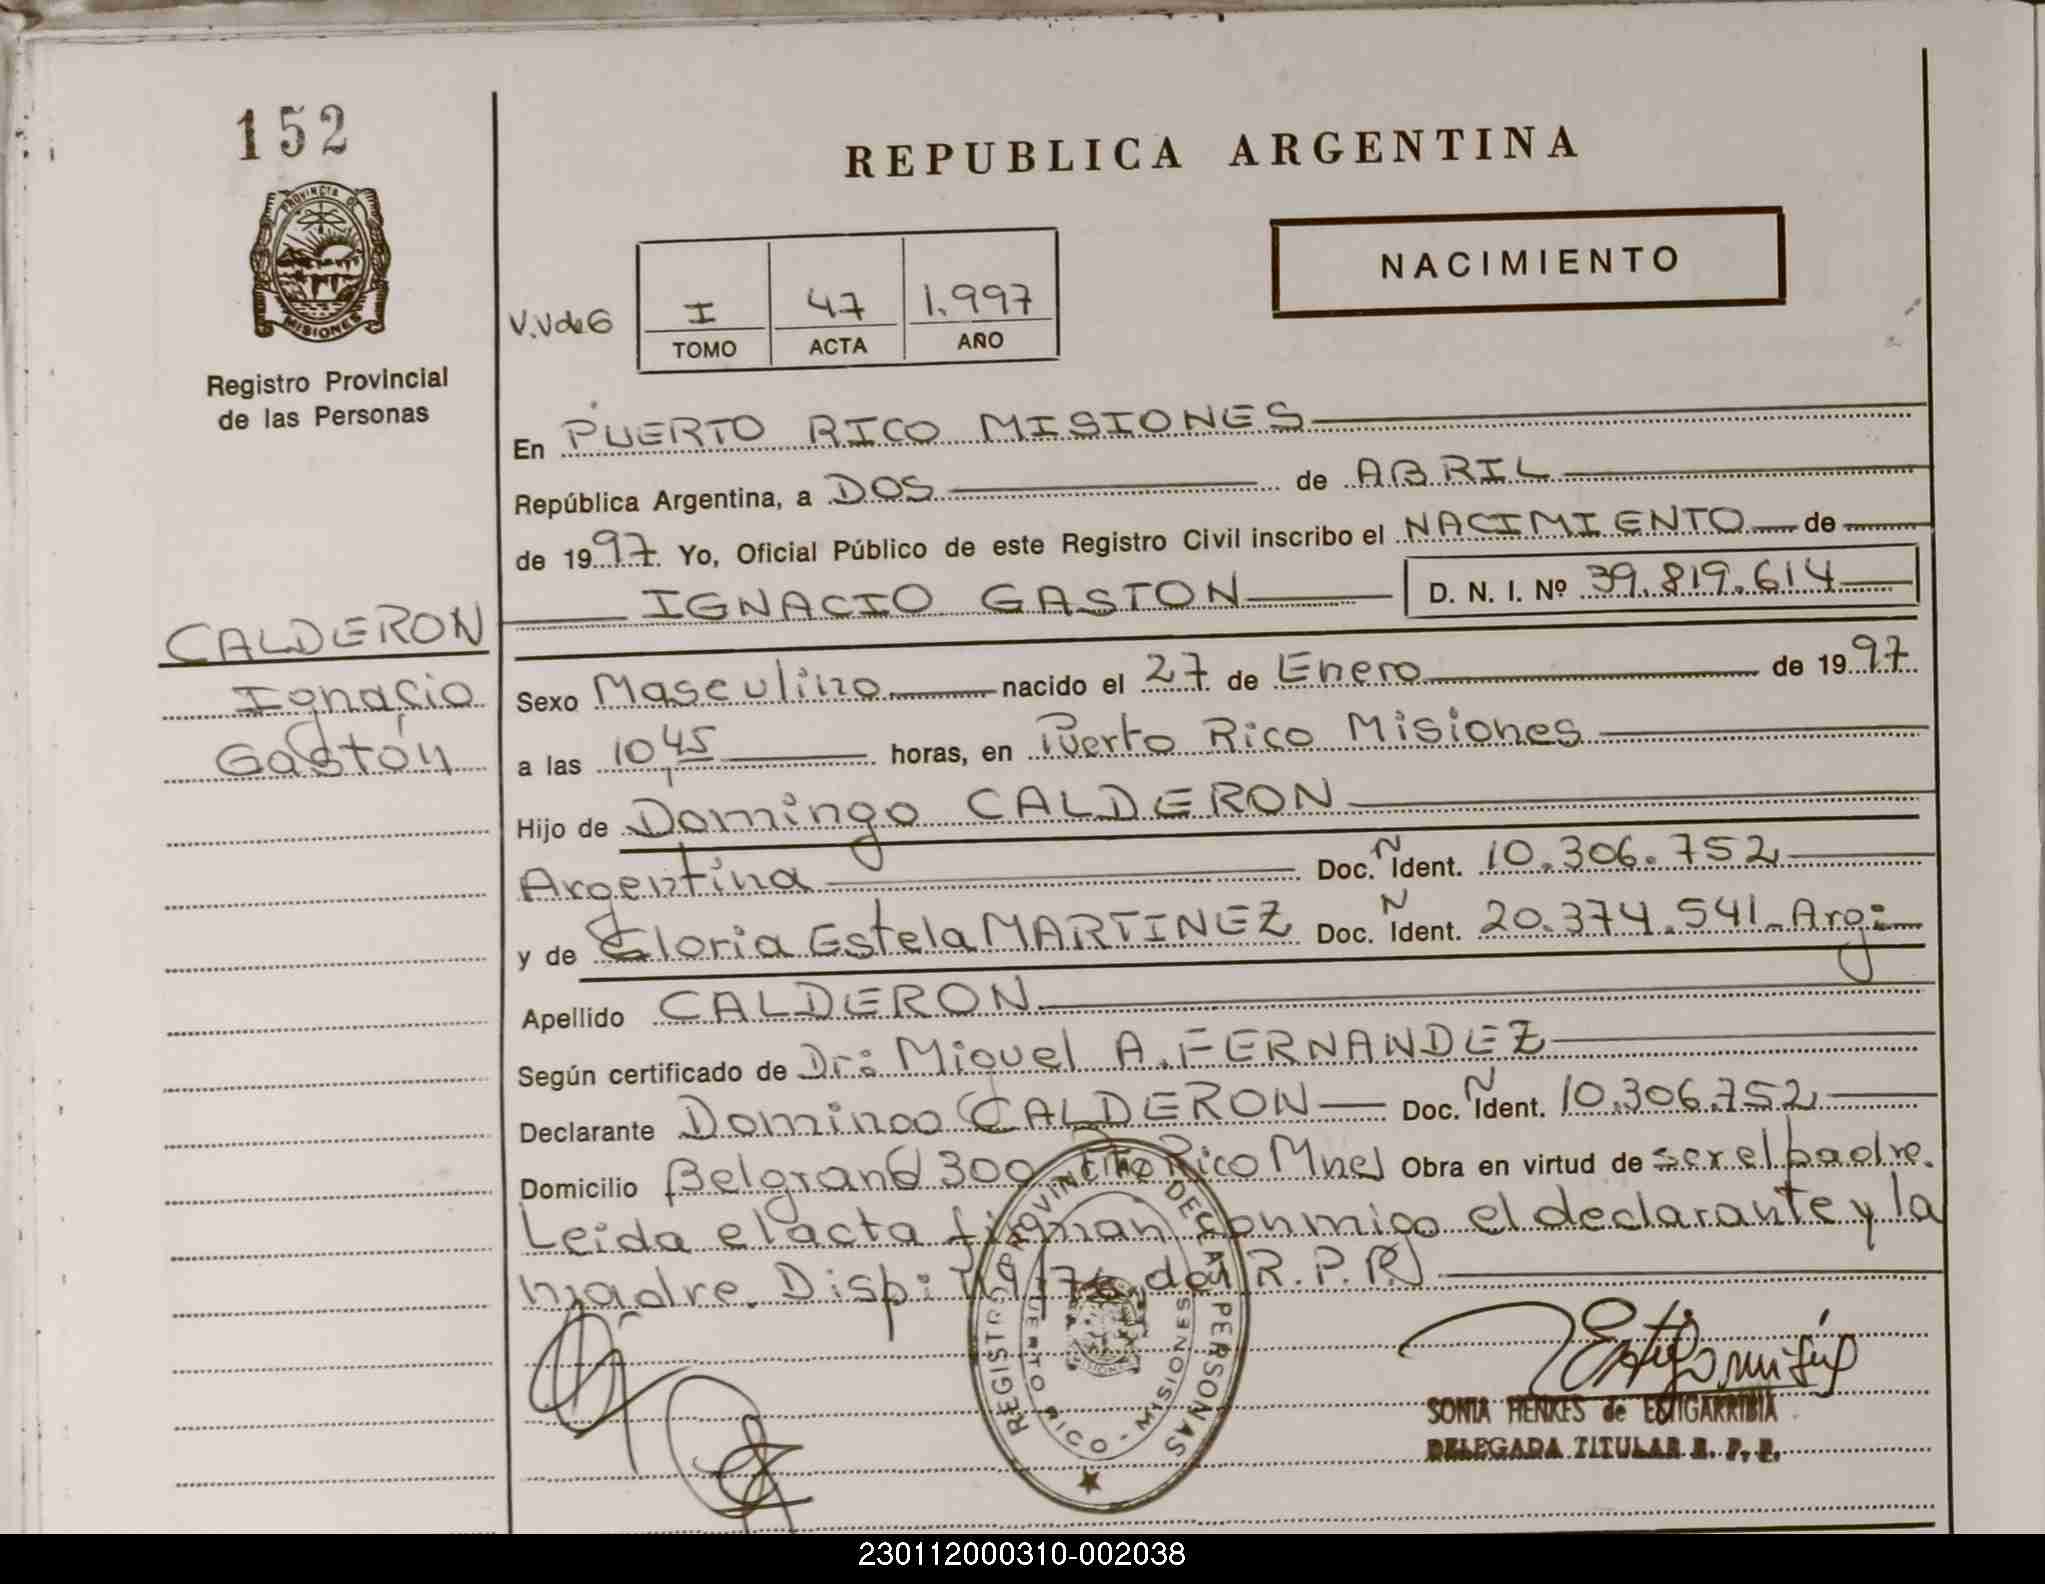 152
PROVINCIA DE
MISIONES
Registro Provincial
de las Personas
REPUBLICA ARGENTINA
NACIMIENTO
V.V de G
I 47 1.997
TOMO ACTA AÑO
En PUERTO RICO MISIONES
República Argentina, a DOS de ABRIL
de 1997. Yo, Oficial Público de este Registro Civil inscribo el NACIMIENTO de
IGNACIO GASTON D. N. I. Nº 39.819.614
CALDERON
Ignacio
Gastón
Sexo Masculino nacido el 27 de Enero de 1997
a las 10,45 horas, en Puerto Rico Misiones
Hijo de Domingo CALDERON
Argentina Doc. N Ident. 10.306.752
y de Gloria Estela MARTINEZ Doc. N Ident. 20.374.541 Arg:
Apellido CALDERON
Según certificado de Dr: Miguel A. FERNANDEZ
Declarante Domingo CALDERON Doc. N Ident. 10.306.752
Domicilio Belgrano 300 Pto Rico Mnes Obra en virtud de ser el padre.
Leida el acta firman conmigo el declarante y la
madre. Disp: del R.P.P.
REGISTRO PROVINCIAL DE LAS PERSONAS
PUERTO RICO - MISIONES
SONIA HENKES de ESTIGARRIBIA
DELEGADA TITULAR R. P. P.
230112000310-002038